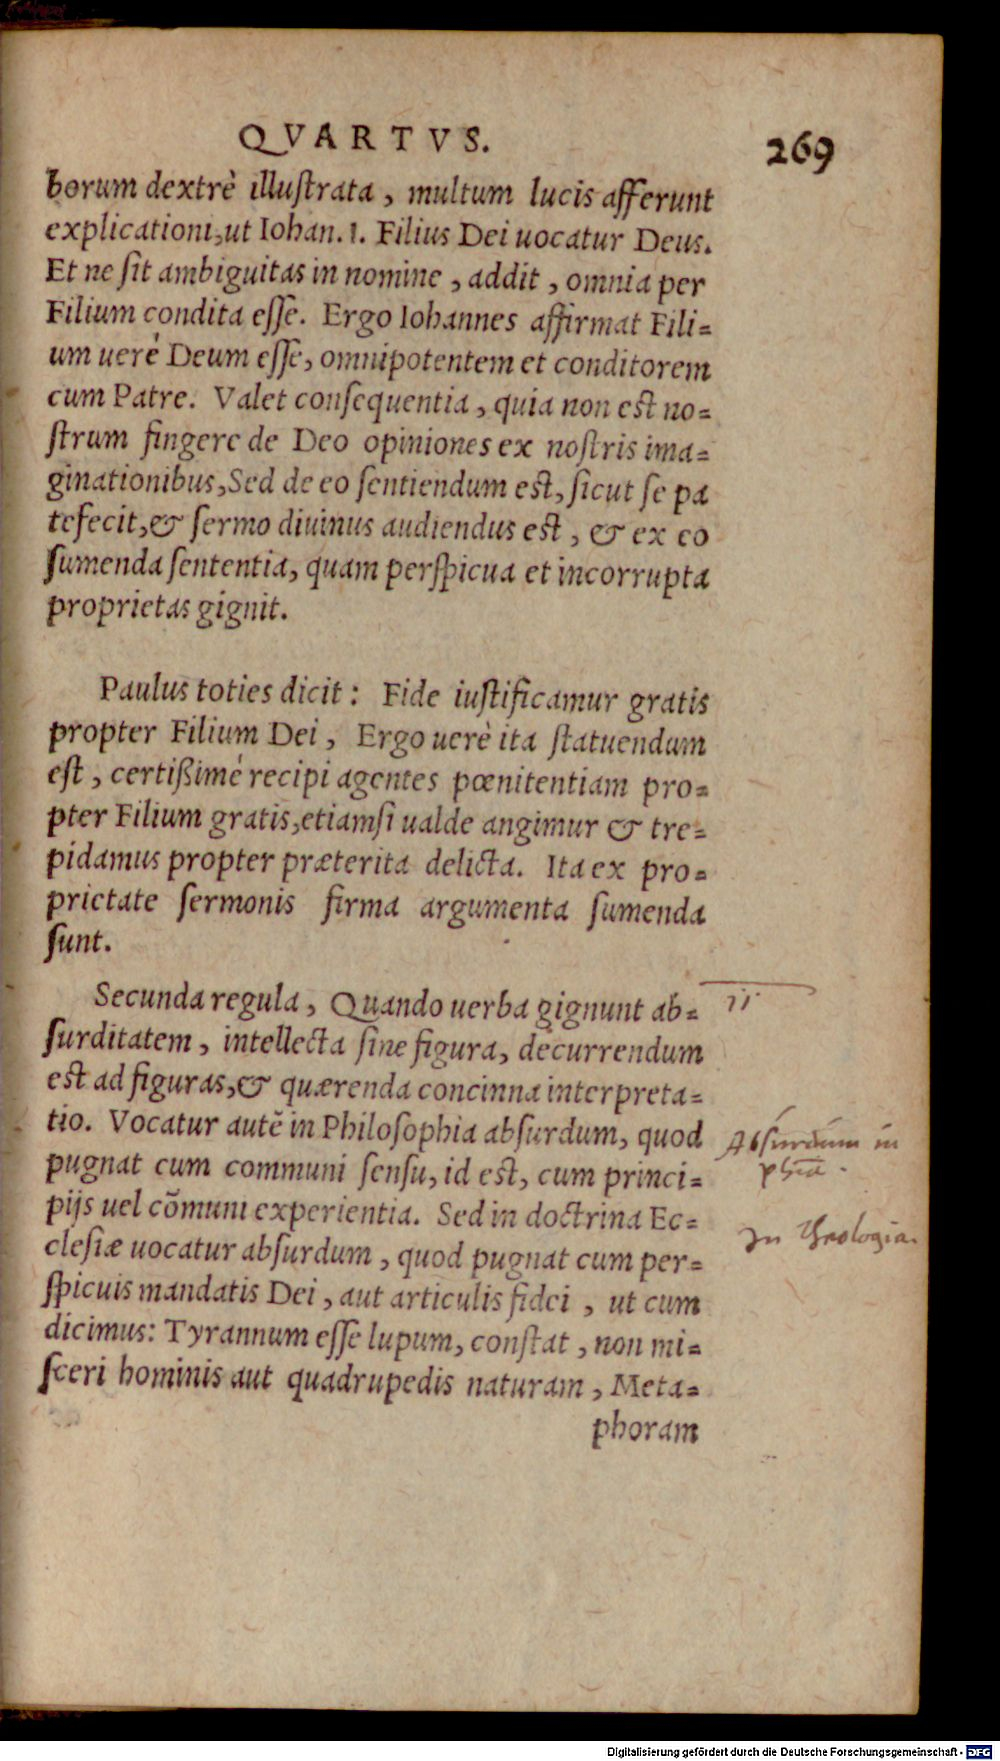 QVARTVS. 269
borum dextrè illuſtrata, multum lucis afferunt
explicationi, ut Iohan. 1. Filius Dei uocatur Deus.
Et ne ſit ambiguitas in nomine, addit, omnia per
Filium condita eſſe. Ergo Iohannes affirmat Fili=
um uerè Deum eſſe, omnipotentem et conditorem
cum Patre. Valet conſequentia, quia non eſt no=
ſtrum fingere de Deo opiniones ex noſtris ima=
ginationibus, Sed de eo ſentiendum eſt, ſicut ſe pa
tefecit, & ſermo diuinus audiendus eſt, & ex eo
ſumenda ſententia, quam perſpicua et incorrupta
proprietas gignit.
Paulus toties dicit: Fide iuſtificamur gratis
propter Filium Dei, Ergo uerè ita ſtatuendum
eſt, certißimè recipi agentes pœnitentiam pro=
pter Filium gratis, etiamſi ualde angimur & tre=
pidamus propter præterita delicta. Ita ex pro=
prietate ſermonis firma argumenta ſumenda
ſunt.
Secunda regula, Quando uerba gignunt ab=
ſurditatem, intellecta ſine figura, decurrendum
eſt ad figuras, & quærenda concinna interpreta=
tio. Vocatur autē in Philoſophia abſurdum, quod
pugnat cum communi ſenſu, id eſt, cum princi=
pijs uel cōmuni experientia. Sed in doctrina Ec=
cleſiæ uocatur abſurdum, quod pugnat cum per=
ſpicuis mandatis Dei, aut articulis fidei, ut cum
dicimus: Tyrannum eſſe lupum, conſtat, non mi=
ſceri hominis aut quadrupedis naturam, Meta=
phoram
II.
Abſurdum in
phia.
In Theologia.
Digitalisierung gefördert durch die Deutsche Forschungsgemeinschaft - DFG